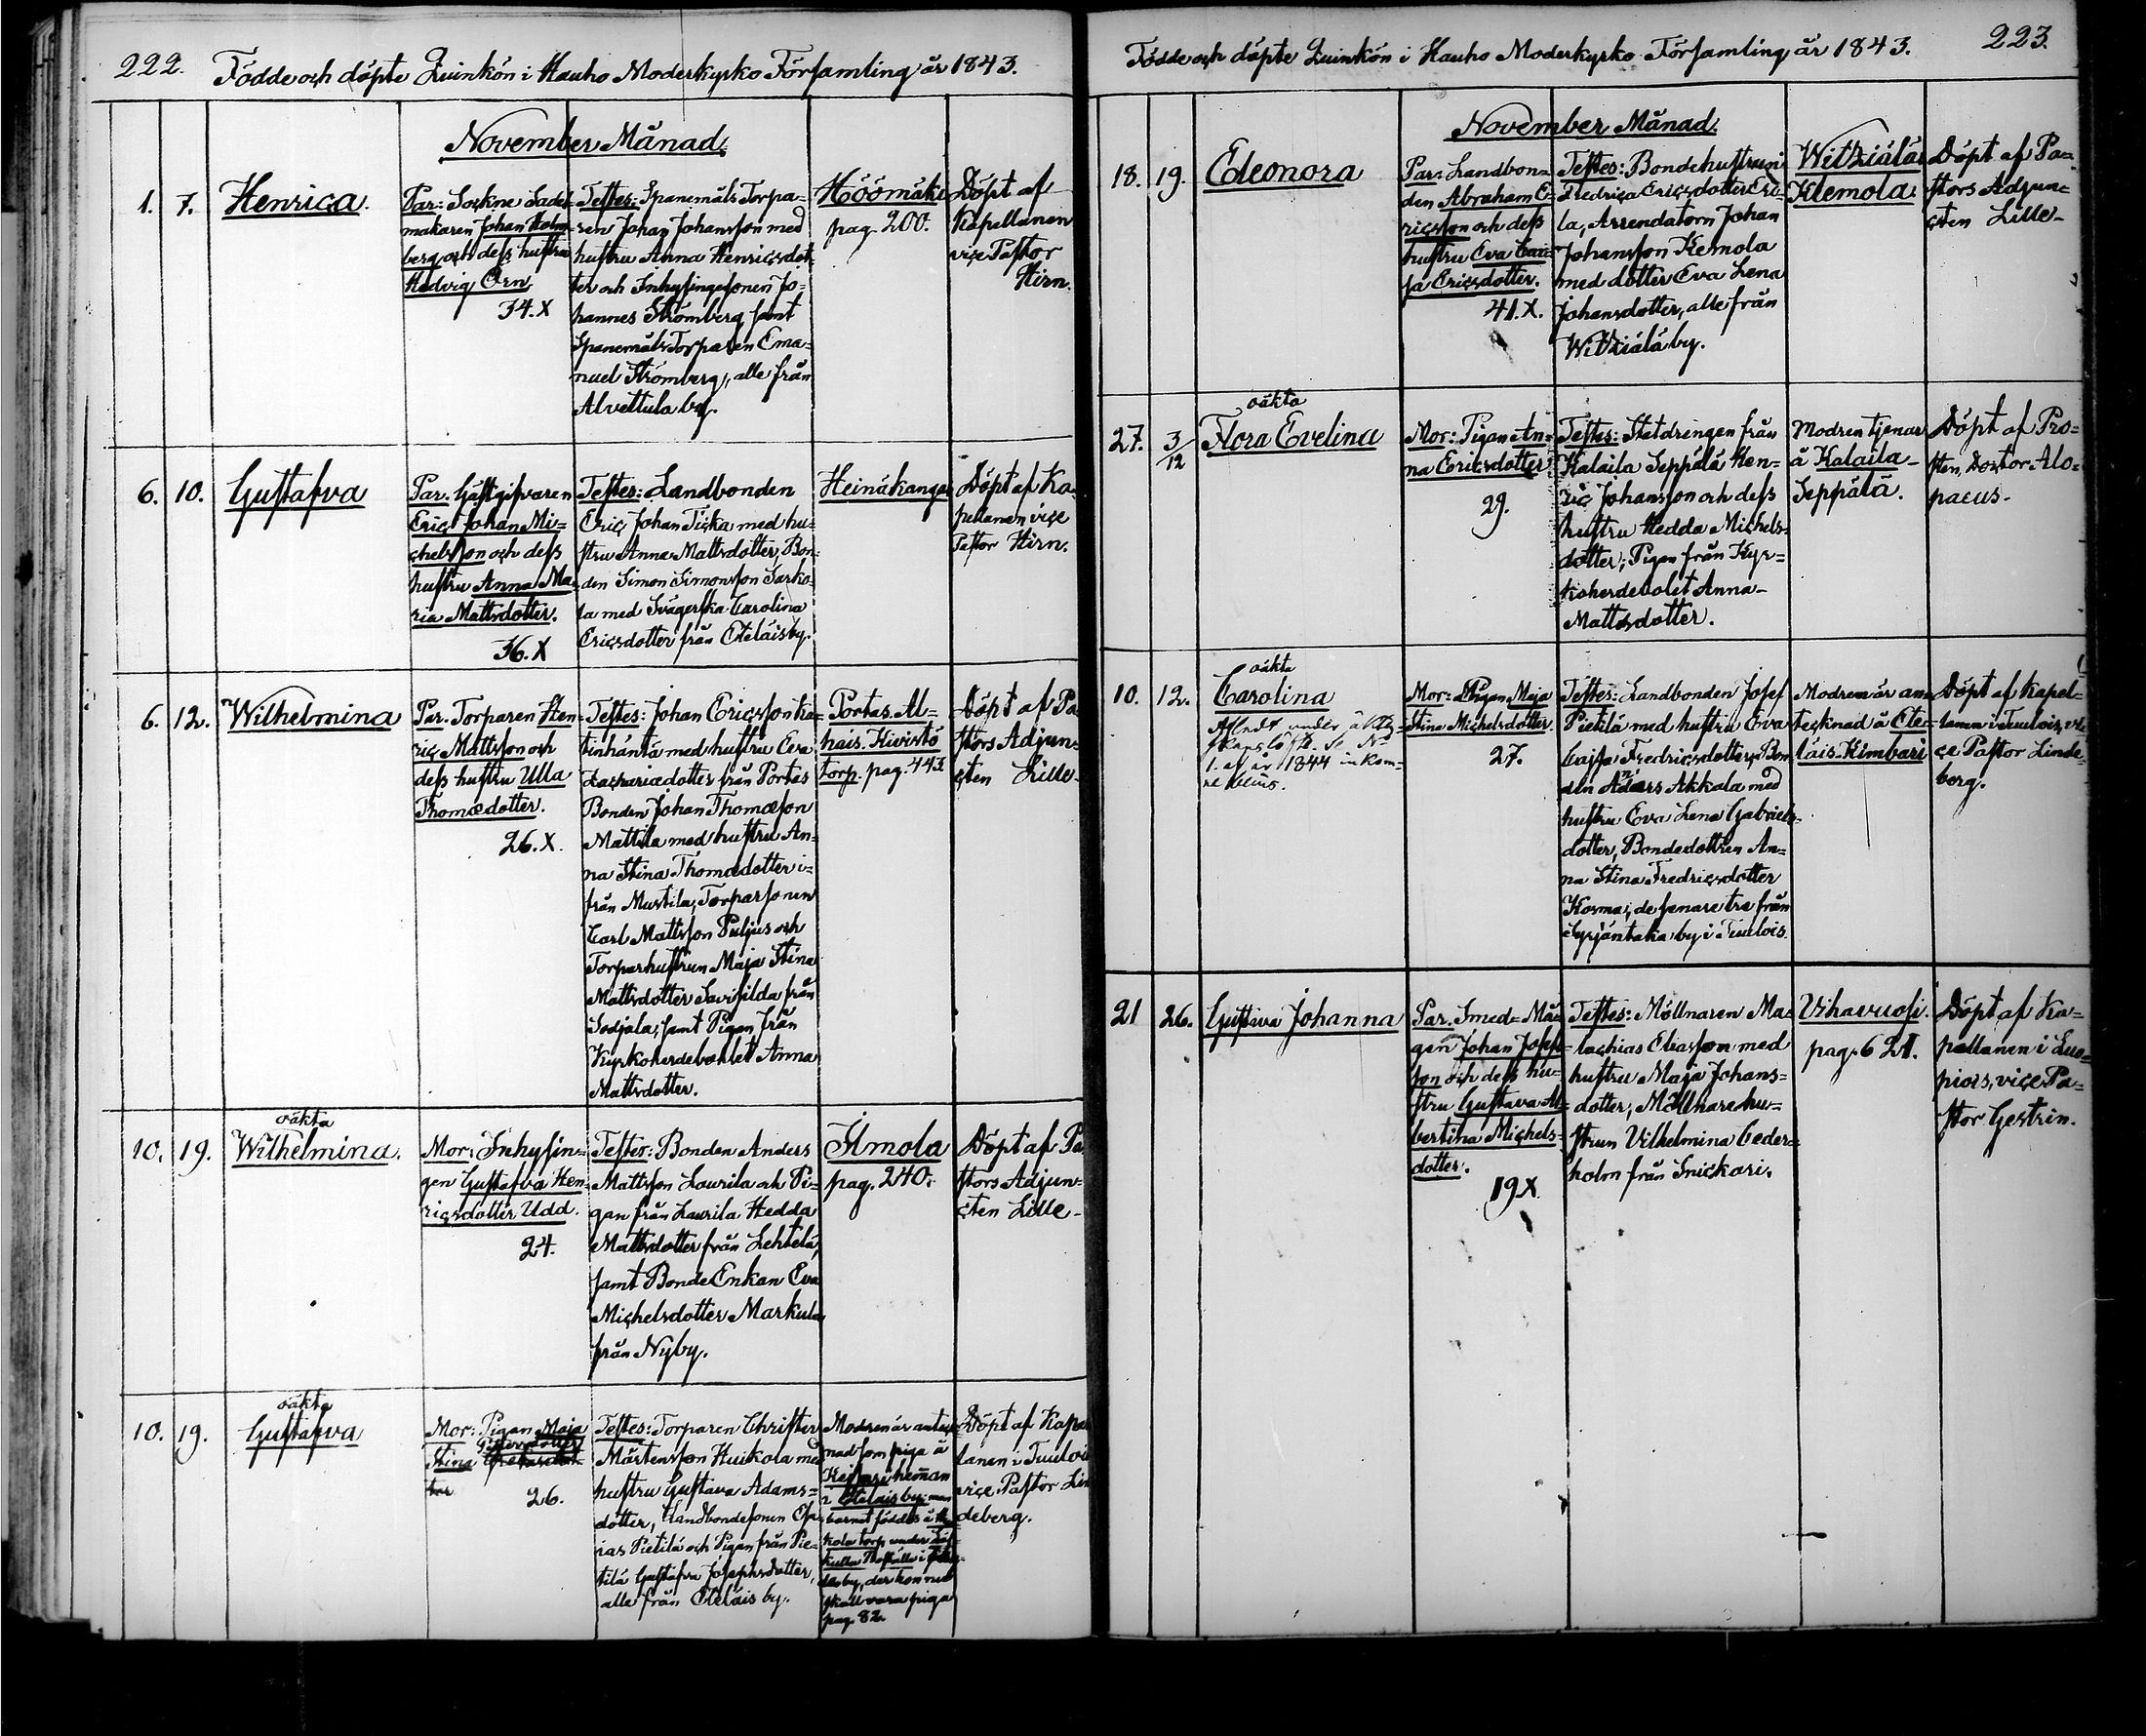 222. Födde och döpte Quinkön i Hauho Moderkyrko Församling år 1843.
November Månad.
1. 7. Henrica.
Par: Sockne Sadel-
makaren Johan Holm-
berg och dess hustru
Hedvig Örn.
34. X
Testes: Spanemåls Torpa-
ren Johan Johansson med
hustru Anna Henricsdot-
ter och Inhysingesonen Jo-
hannes Strömberg samt
Spanemåls Torparen Ema-
nuel Strömberg, alle från
Alvettula by.
Höömäki
pag. 200.
Döpt af
Kapellanen
vice Pastor
Hirn.
6. 10. Gustafva
Par. Gästgifvaren
Eric Johan Mi=
chelsson och dess
hustru Anna Ma-
ria Mattsdotter.
36. X
Testes: Landbonden
Eric Johan Ticka med hu-
stru Anna Mattsdotter, Bon-
den Simon Simonsson Sarko-
la med Svägerska Carolina
Ericsdotter från Eteläis by.
Heinäkangas
Döpt af Ka-
pellanen vice
Pastor Hirn.
6. 12. Wilhelmina
Par. Torparen Hen-
ric Mattsson och
dess hustru Ulla
Thomædotter.
26. X.
Testes: Johan Ericsson Ka-
tinhäntä med hustru Eva
Zachariædotter från Portas
Bonden Johan Thomæson
Mattila med hustru An=
na Stina Thomædotter i-
från Mustila, Torparsonen
Carl Mattsson Puljus och
Torparhustrun Maja Stina
Mattsdotter Savisilda från
Sodjala, samt Pigan från
Kyrkoherdebohlet Anna
Mattsdotter.
Portas Al=
hais. Kivistö
torp. pag. 443.
Döpt af Pa-
stors Adjun-
cten Lille-
oäkta
10. 19. Wilhelmina.
Mor: Inhysin-
gen Gustafva Hen-
ricsdotter Udd.
24.
Testes: Bonden Anders
Mattsson Laurila och Pi-
gan från Laurila Hedda
Mattsdotter från Lehtelä,
samt Bonde Enkan Eva
Michelsdotter Markula
från Nyby.
Ilmola
pag. 240.
Döpt af Pa-
stors Adjun-
cten Lille-
oäkta
10. 19. Gustafva
Mor: Pigan Maja
Stina
26.
Testes: Torparen Christer
Mårtensson Huikola med
hustru Gustava Adams=
dotter, Landbondesonen Esa-
ias Pietilä och Pigan från Pie-
tilä Gustafva Josephsdotter,
alle från Eteläis by.
Modren är anteck-
nad som piga å
hemman
i Eteläis by, men
barnet föddes å
kola torp under
by, der hon nu
skall vara piga
pag. 82.
Döpt af Kapel-
lanen i Tuulois
vice Pastor Lin-
deberg.
Födde och döpte Quinkön i Hauho Moderkyrko Församling år 1843. 223.
November Månad.
18. 19. Eleonora
Par: Landbon=
den Abraham E-
ricsson och dess
hustru Eva Cai=
sa Ericsdotter.
41. X.
Testes: Bondehustrun
Fredrica Ericsdotter Eri-
la, Arrendatorn Johan
Johansson Kemola
med dotter Eva Lena
Johansdotter, alle från
Witziälä by.
Witziälä
Klemola.
Döpt af Pa=
stors Adjun-
cten Lille-
oäkta
27. 3/12 Flora Evelina
Mor: Pigan An=
na Ericsdotter
29.
Testes: Statdrengen från
Kalaila Seppälä Hen=
ric Johansson och dess
hustru Hedda Michels-
dotter; Pigan från Kyr=
koherdebolet Anna-
Mattsdotter.
Modren tjenar
å Kalaila-
Seppälä.
Döpt af Pro=
sten, Doctor Alo=
paeus-
oäkta
10. 12. Carolina
Aflad under äkten-
skaps löfte. Se No
1. af år 1844 inkom-
ne
Mor: Pigan Maja
Stina Michelsdotter
27.
Testes: Landbonden Josef
Pietilä med hustru Eva
Cajsa Fredricsdotter, Bon-
den Anders Akkala med
hustru Eva Lena Gabriels-
dotter, Bondedottren An=
na Stina Fredricsdotter
Kosma; de senare tre från
Syrjäntaka by i Tuulois.
Modren är an-
tecknad å Ete=
läis-Kimbari
Döpt af Kapel=
lanen i Tuulois, vi-
ce Pastor Linde-
berg.
21 26. Gustava Johanna
Par. Smed-Må-
gen Johan Josefs-
son och dess hu-
stru Gustava Al-
bertina Michels-
dotter.
19 X.
Testes: Möllnaren Ma-
lachias Eliasson med
hustru Maja Johans=
dotter, Möllnarehu=
strun Vilhelmina Ceder=
holm från Snickari.
Vihavuosi.
pag. 621.
Döpt af Ka=
pellanen i Luo=
piois, vice Pa=
stor Gestrin.